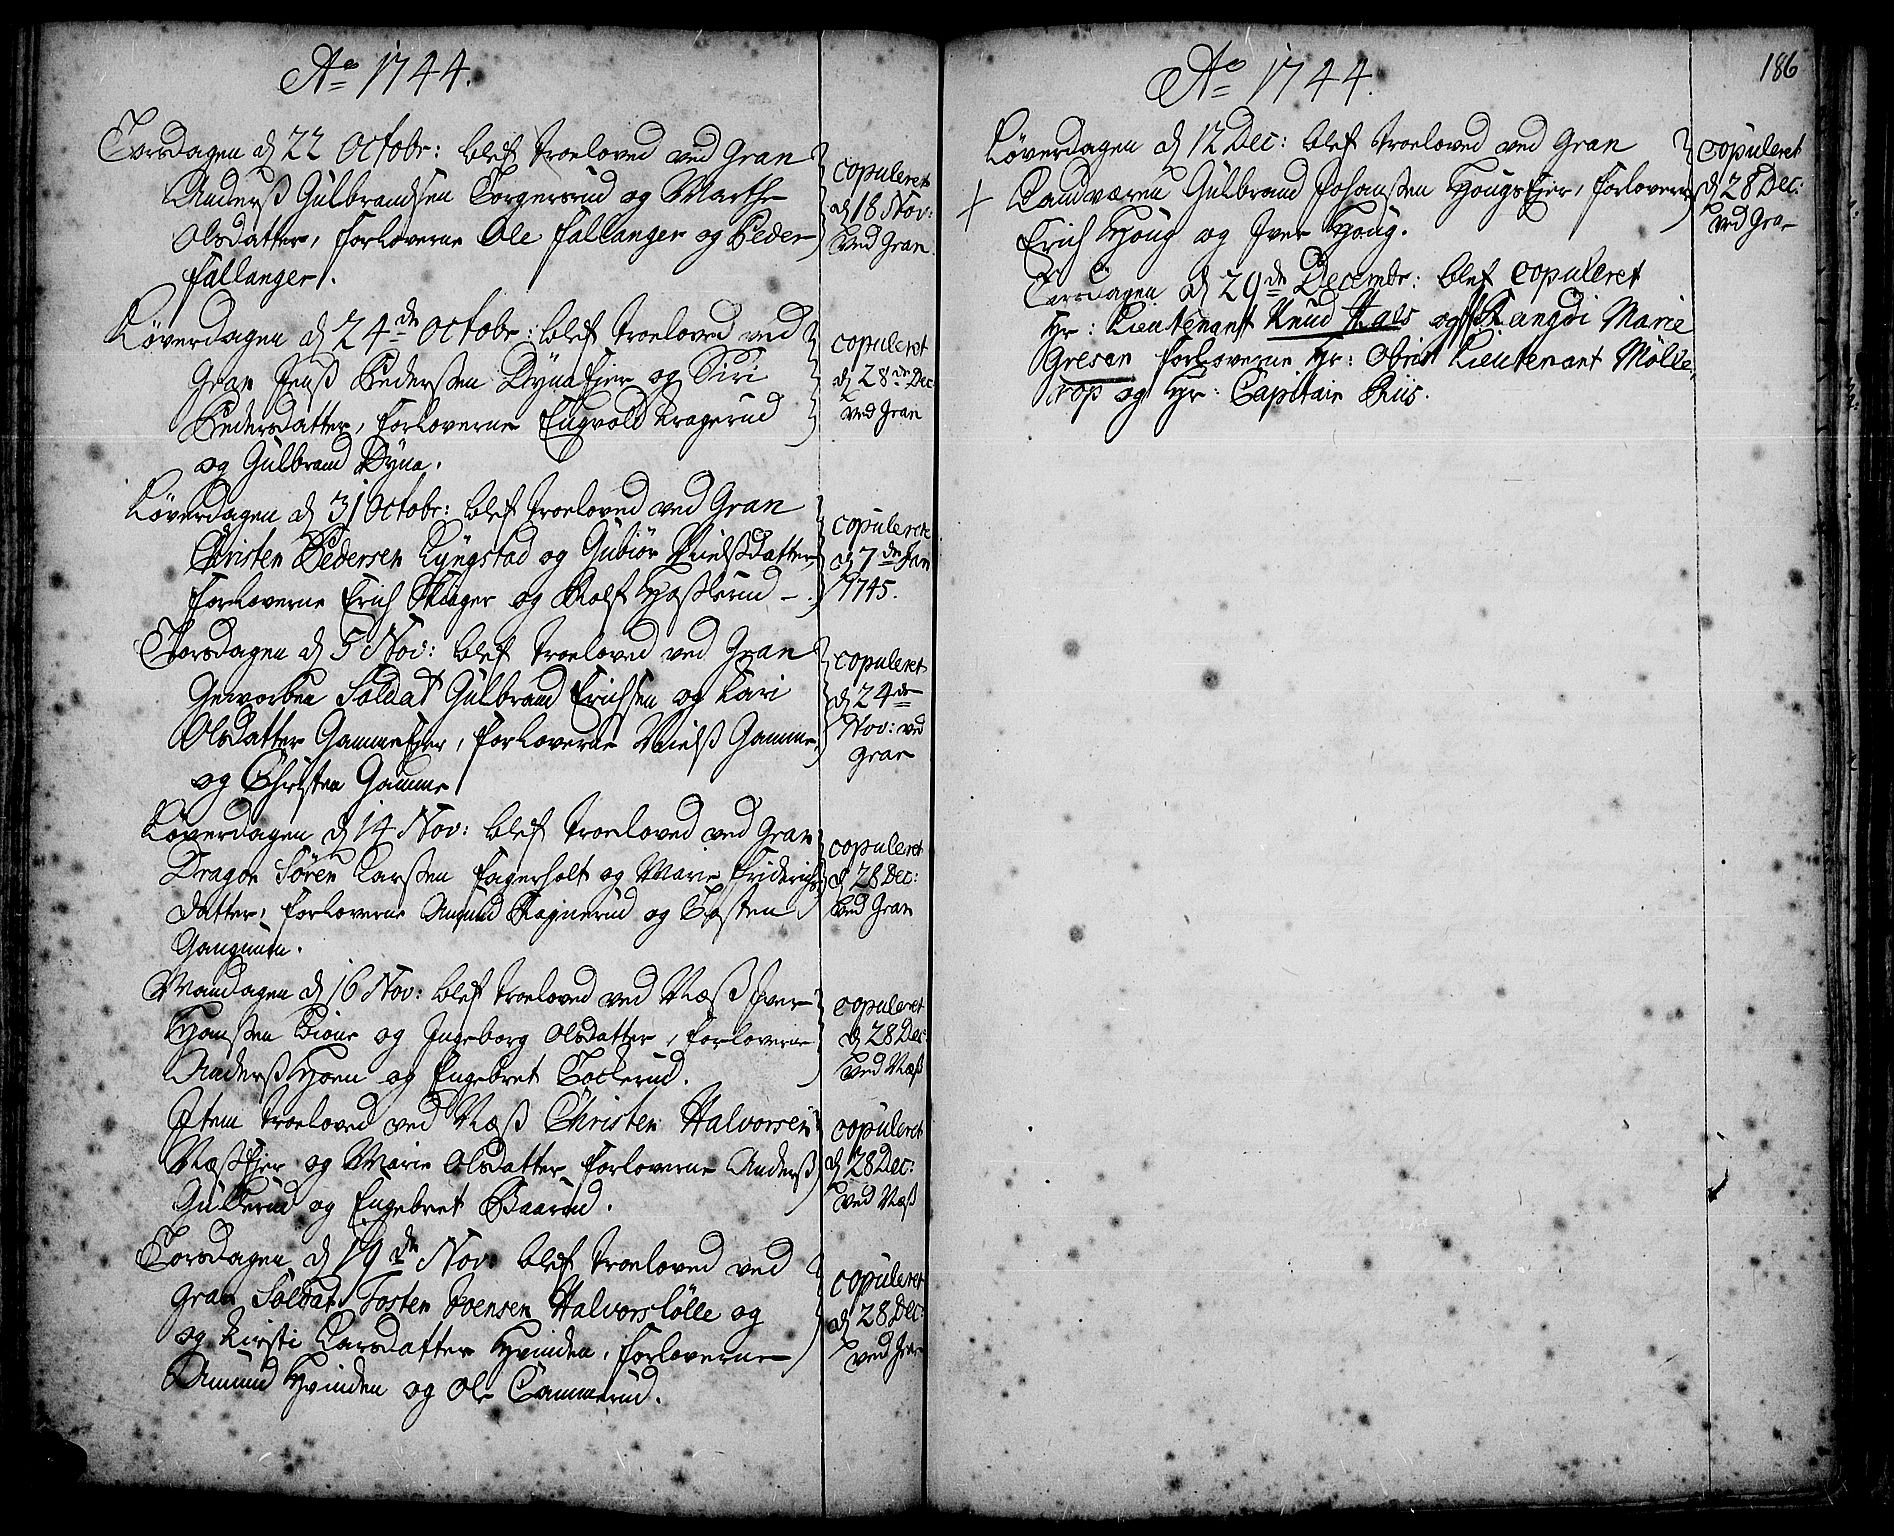 Ao 1744.
Torsdagen d 22 Octobr: blef troeloved ved Gran
Anderß Gulbrandsen Torgersrud og Marthe
Olsdatter, forloverne Ole Fallanger og Peder
Fallanger.
copuleret
d 18 Nov:
ved Gran
Løverdagen d 24de Octobr: blef troeloved ved
Gran Jenß Pederßen Dyna Ejer og Siri
Pedersdatter, forloverne Engvold Kragerud
og Gulbrand Dyna.
copuleret
d 28de Dec
ved Gran
Løverdagen d 31 Octobr: blef troeloved ved Gran
Christen Pedersen Lyngstad og Gubiør Nielßdatter
forloverne Erich Skiager og Rolf Haßlerud
copuleret
d 7de Jan
1745.
Torsdagen d 5 Nov: blef troeloved ved Gran
Geworben Soldat Gulbrand Erichsen og Kari
Olsdatter Gamme Ejer, forloverne Nielß Gamme
og Christen Gamme
copuleret
d 24de
Nov: ved
Gran
Løverdagen d 14 Nov: blef troeloved ved Gran
Dragon Sören Larßen Fagerholt og Marie Friderichs
datter, forloverne Amund Ragnerud og Tosten
Gangnum.
copuleret
d 28 Dec:
ved Gran
Mandagen d 16 Nov: blef troeloved ved Næß Iver
Hanßen Bione og Ingeborg Olsdatter, forloverne
Anderß Hoen og Engebret Toclerud.
copuleret
d 28 Dec:
ved Næß
Item troeloved ved Næß Christen Halvorsen
Næß Ejer og Marie Olsdatter forloverne Anderß
Gulerud og Engebret Baarud.
copuleret
d 28 Dec:
ved Næß
Torsdagen d 19de Nov: blef troeloved ved
Gran Soldat Tosten Joensen Halvorslölle og
og Kirsti Larsdatter Hvinden, forloverne
Amund Hvinden og Ole Cammerud.
copuleret
d 28 Dec:
ved Gran
186
Ao 1744.
Løverdagen d 12 Dec: blef troeloved ved Gran
Landværen Gulbrand Johanßen Hougs Ejer, forloverne
Erich Houg og Iver Houg.
copuleret
d 28 Dec:
ved Gran
Torsdagen d 29de Decembr: blef copuleret
Hr: Lieutenant Knud Hals og Rangdi Marie
Gresen forloverne Hr: Obrist Lieutenant Mölle
rop og Hr: Capitain Riis.